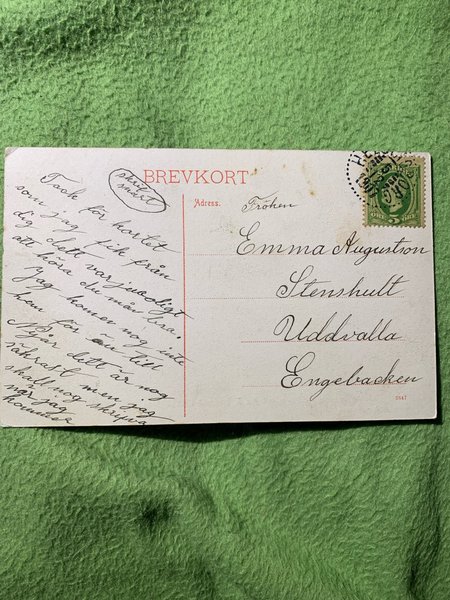 skrif
snart
BREVKORT
Tack för kortet
som jag fik från
dig dett var
att höra du mår bra.
jag komer nog inte
hem för en till
dett är nog
men jag
skall nog skrifva
när jag
kommer
Adress.
Fröken
Emma Augustson
Stenshult
Uddvalla
Engebacken
5547
5 ÖRE